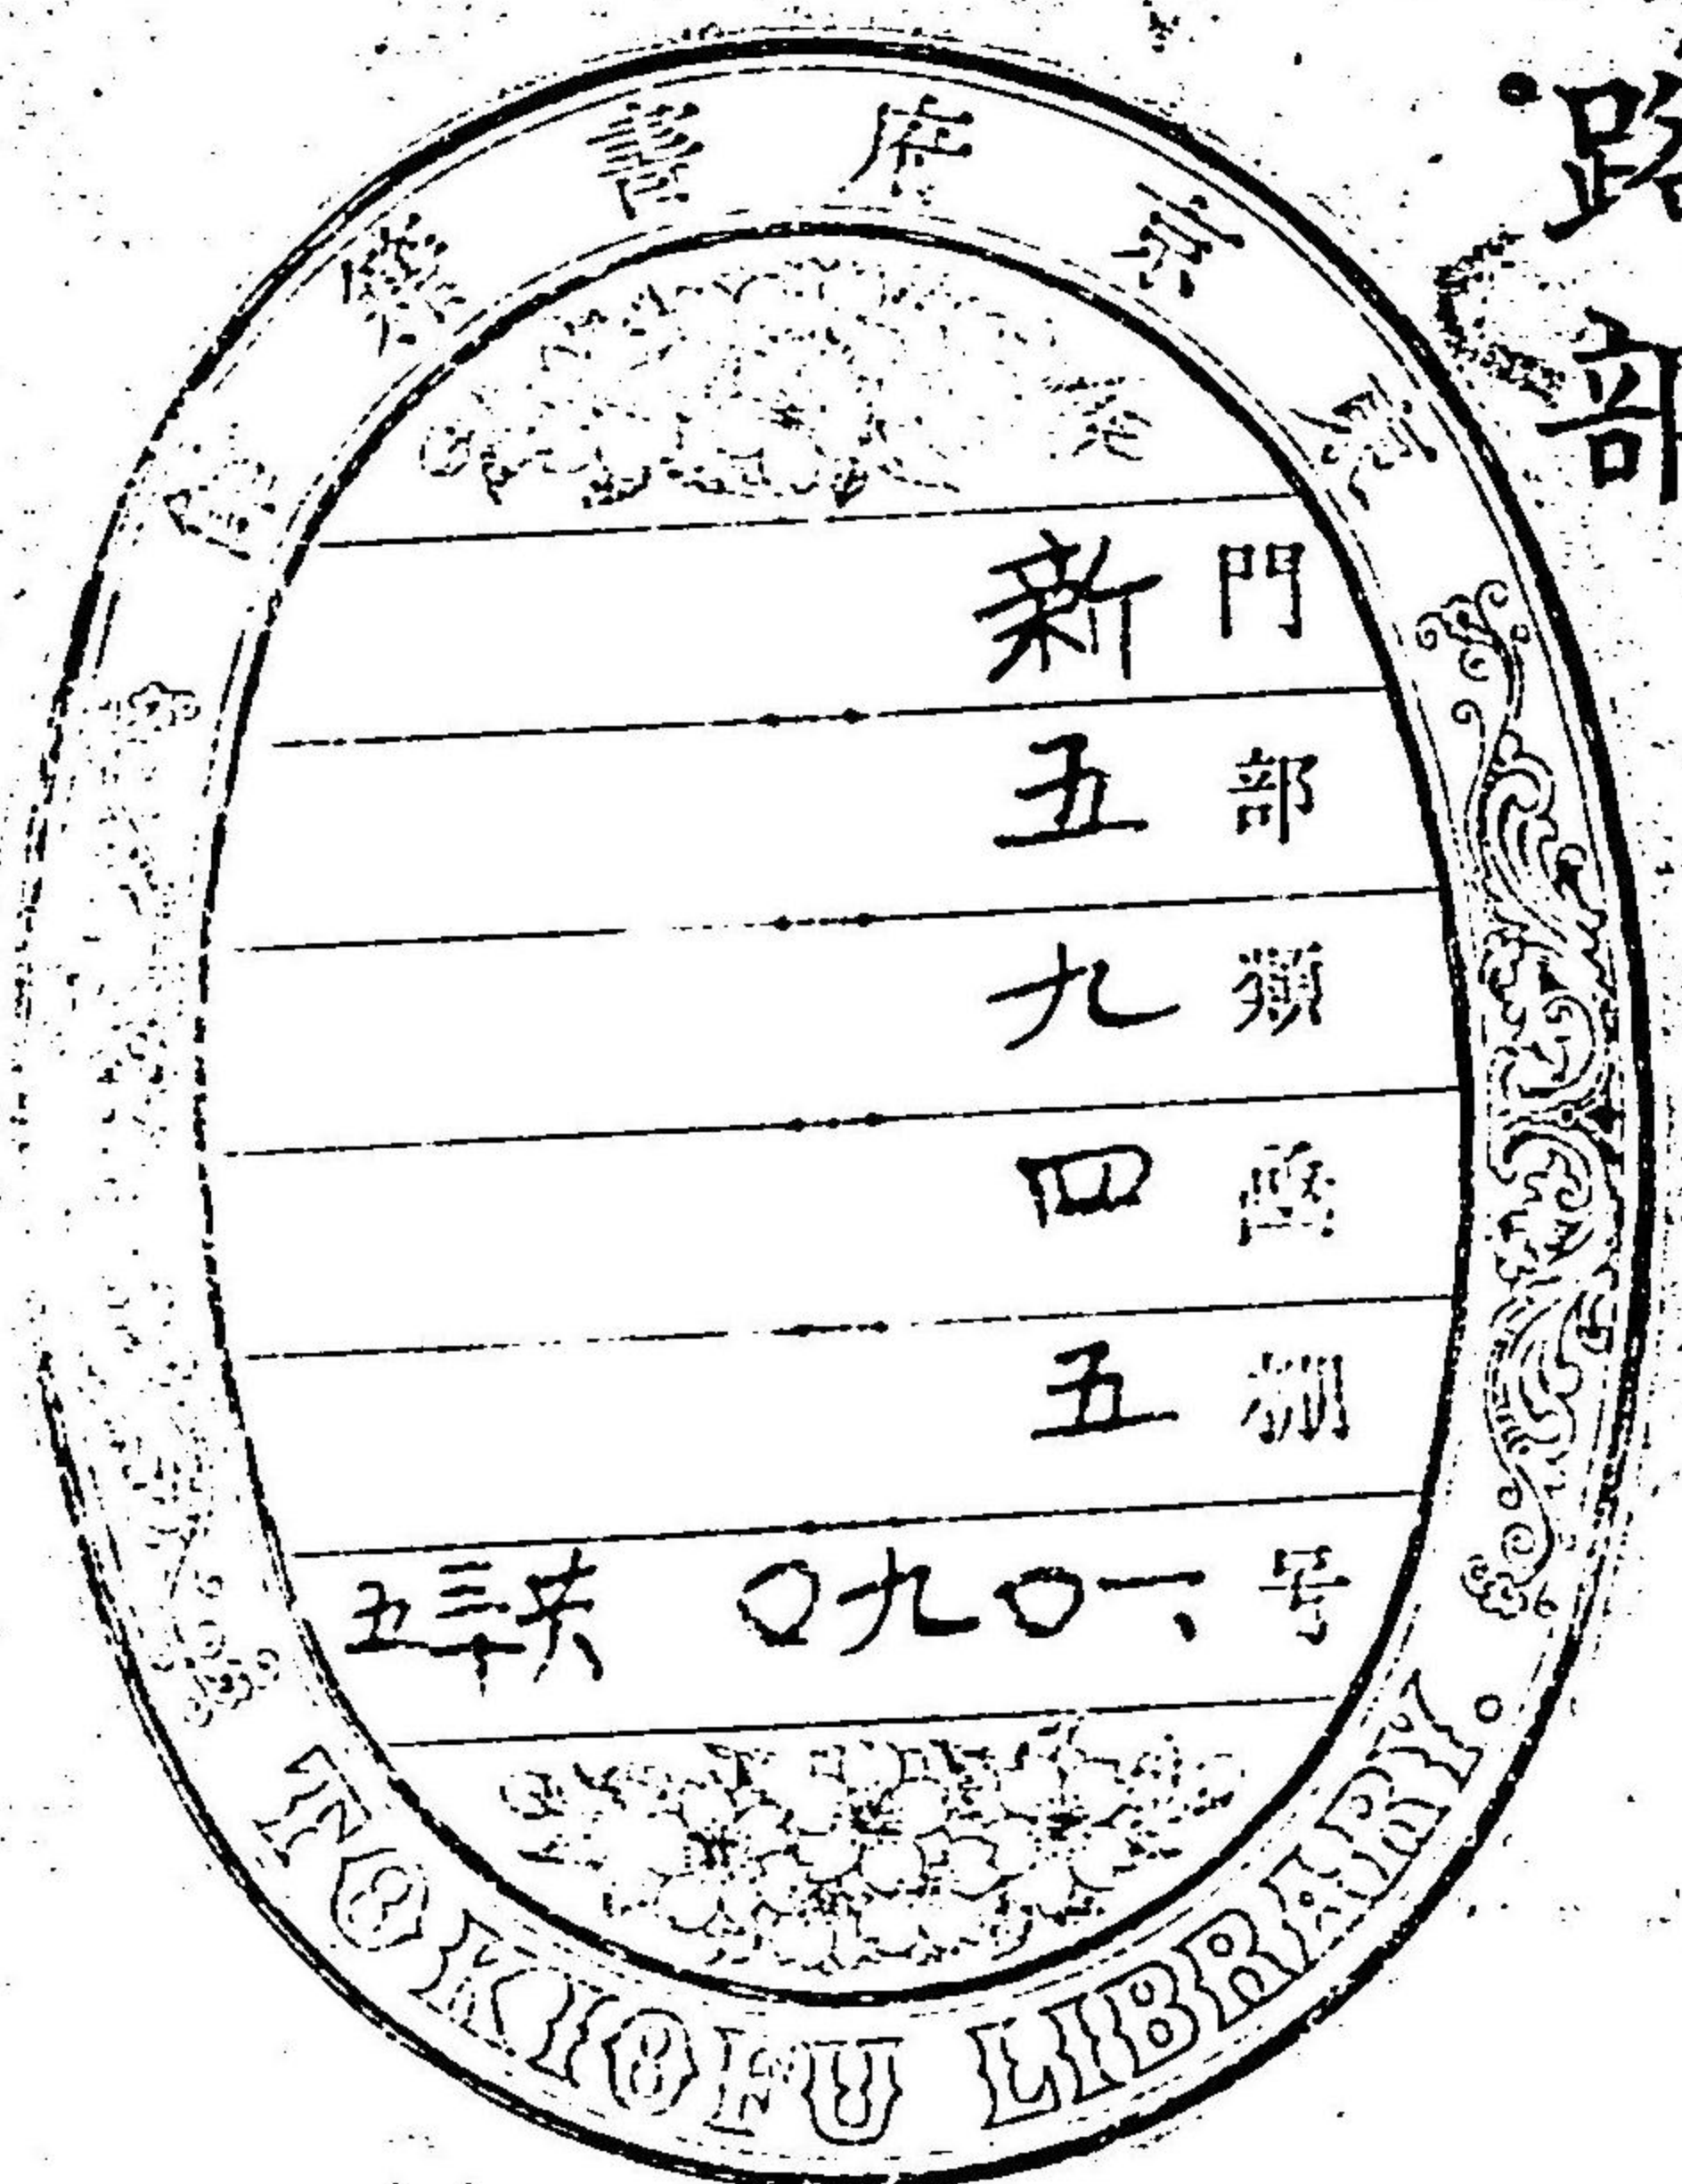 東京府書籍館
門 新
部 五
類 九
函 四
棚 五
号 一、〇九〇 共三十五
TOKIOFU LIBRARY.